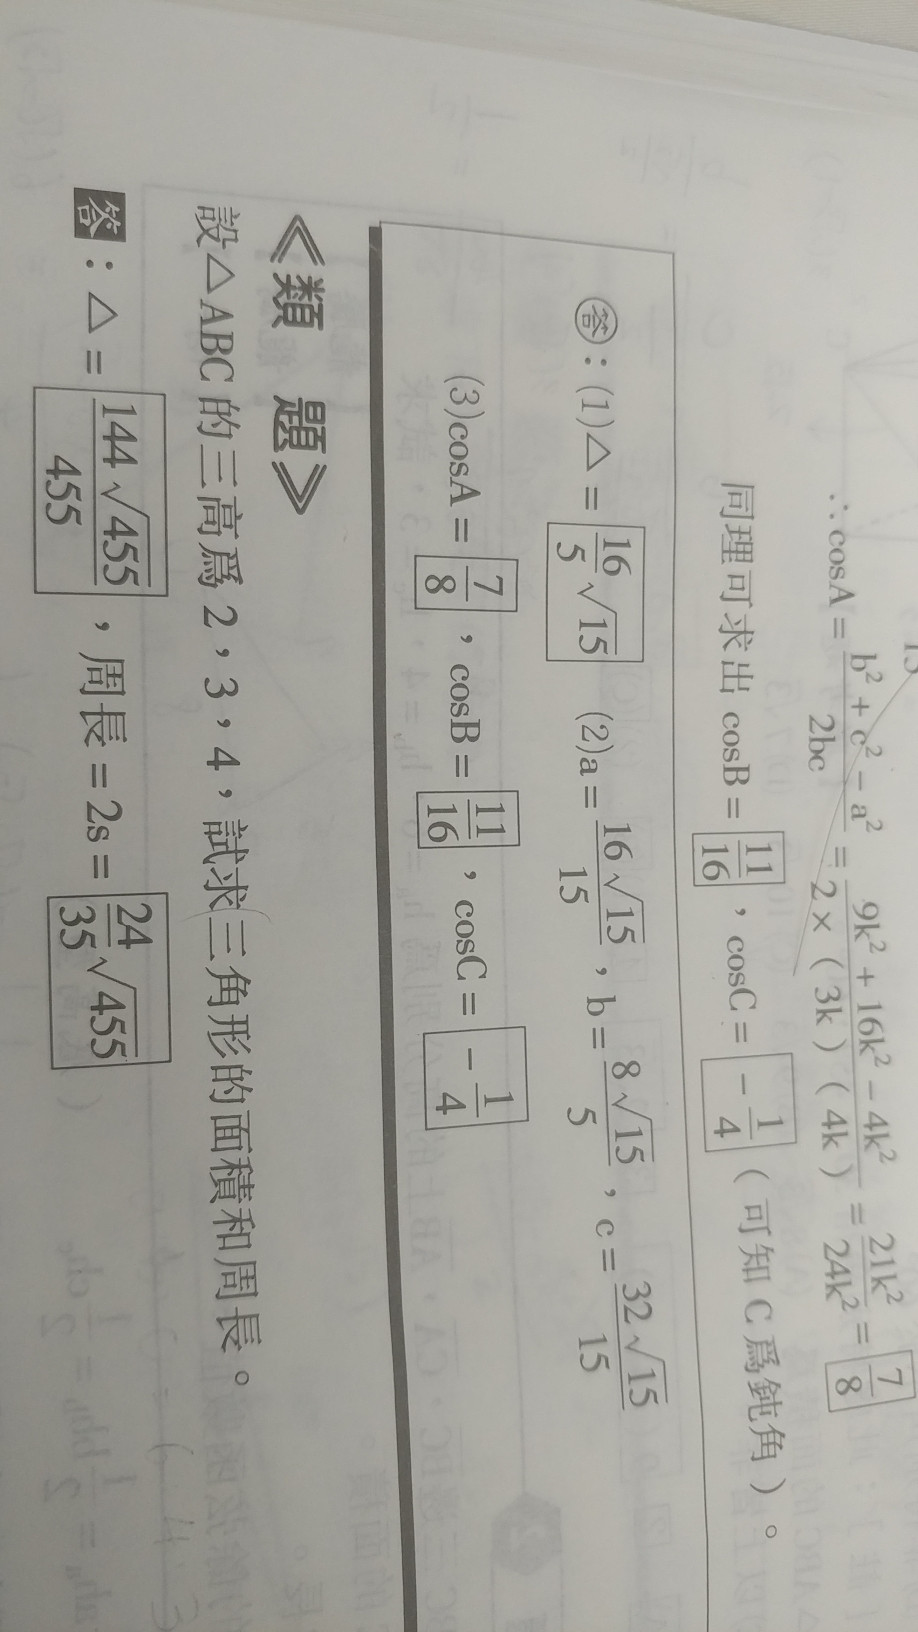 ∴cosA = (b² + c² − a²)/(2bc) = (9k² + 16k² − 4k²)/(2 × (3k)(4k)) = 21k²/24k² = 7/8
同理可求出 cosB = 11/16，cosC = −1/4（可知 C 爲鈍角）。
答：(1)△ = 16/5 √15 (2)a = 16√15/15，b = 8√15/5，c = 32√15/15
(3)cosA = 7/8，cosB = 11/16，cosC = −1/4
《類 題》
設△ABC 的三高爲 2，3，4，試求三角形的面積和周長。
答：△ = 144√455/455，周長 = 2s = 24/35 √455